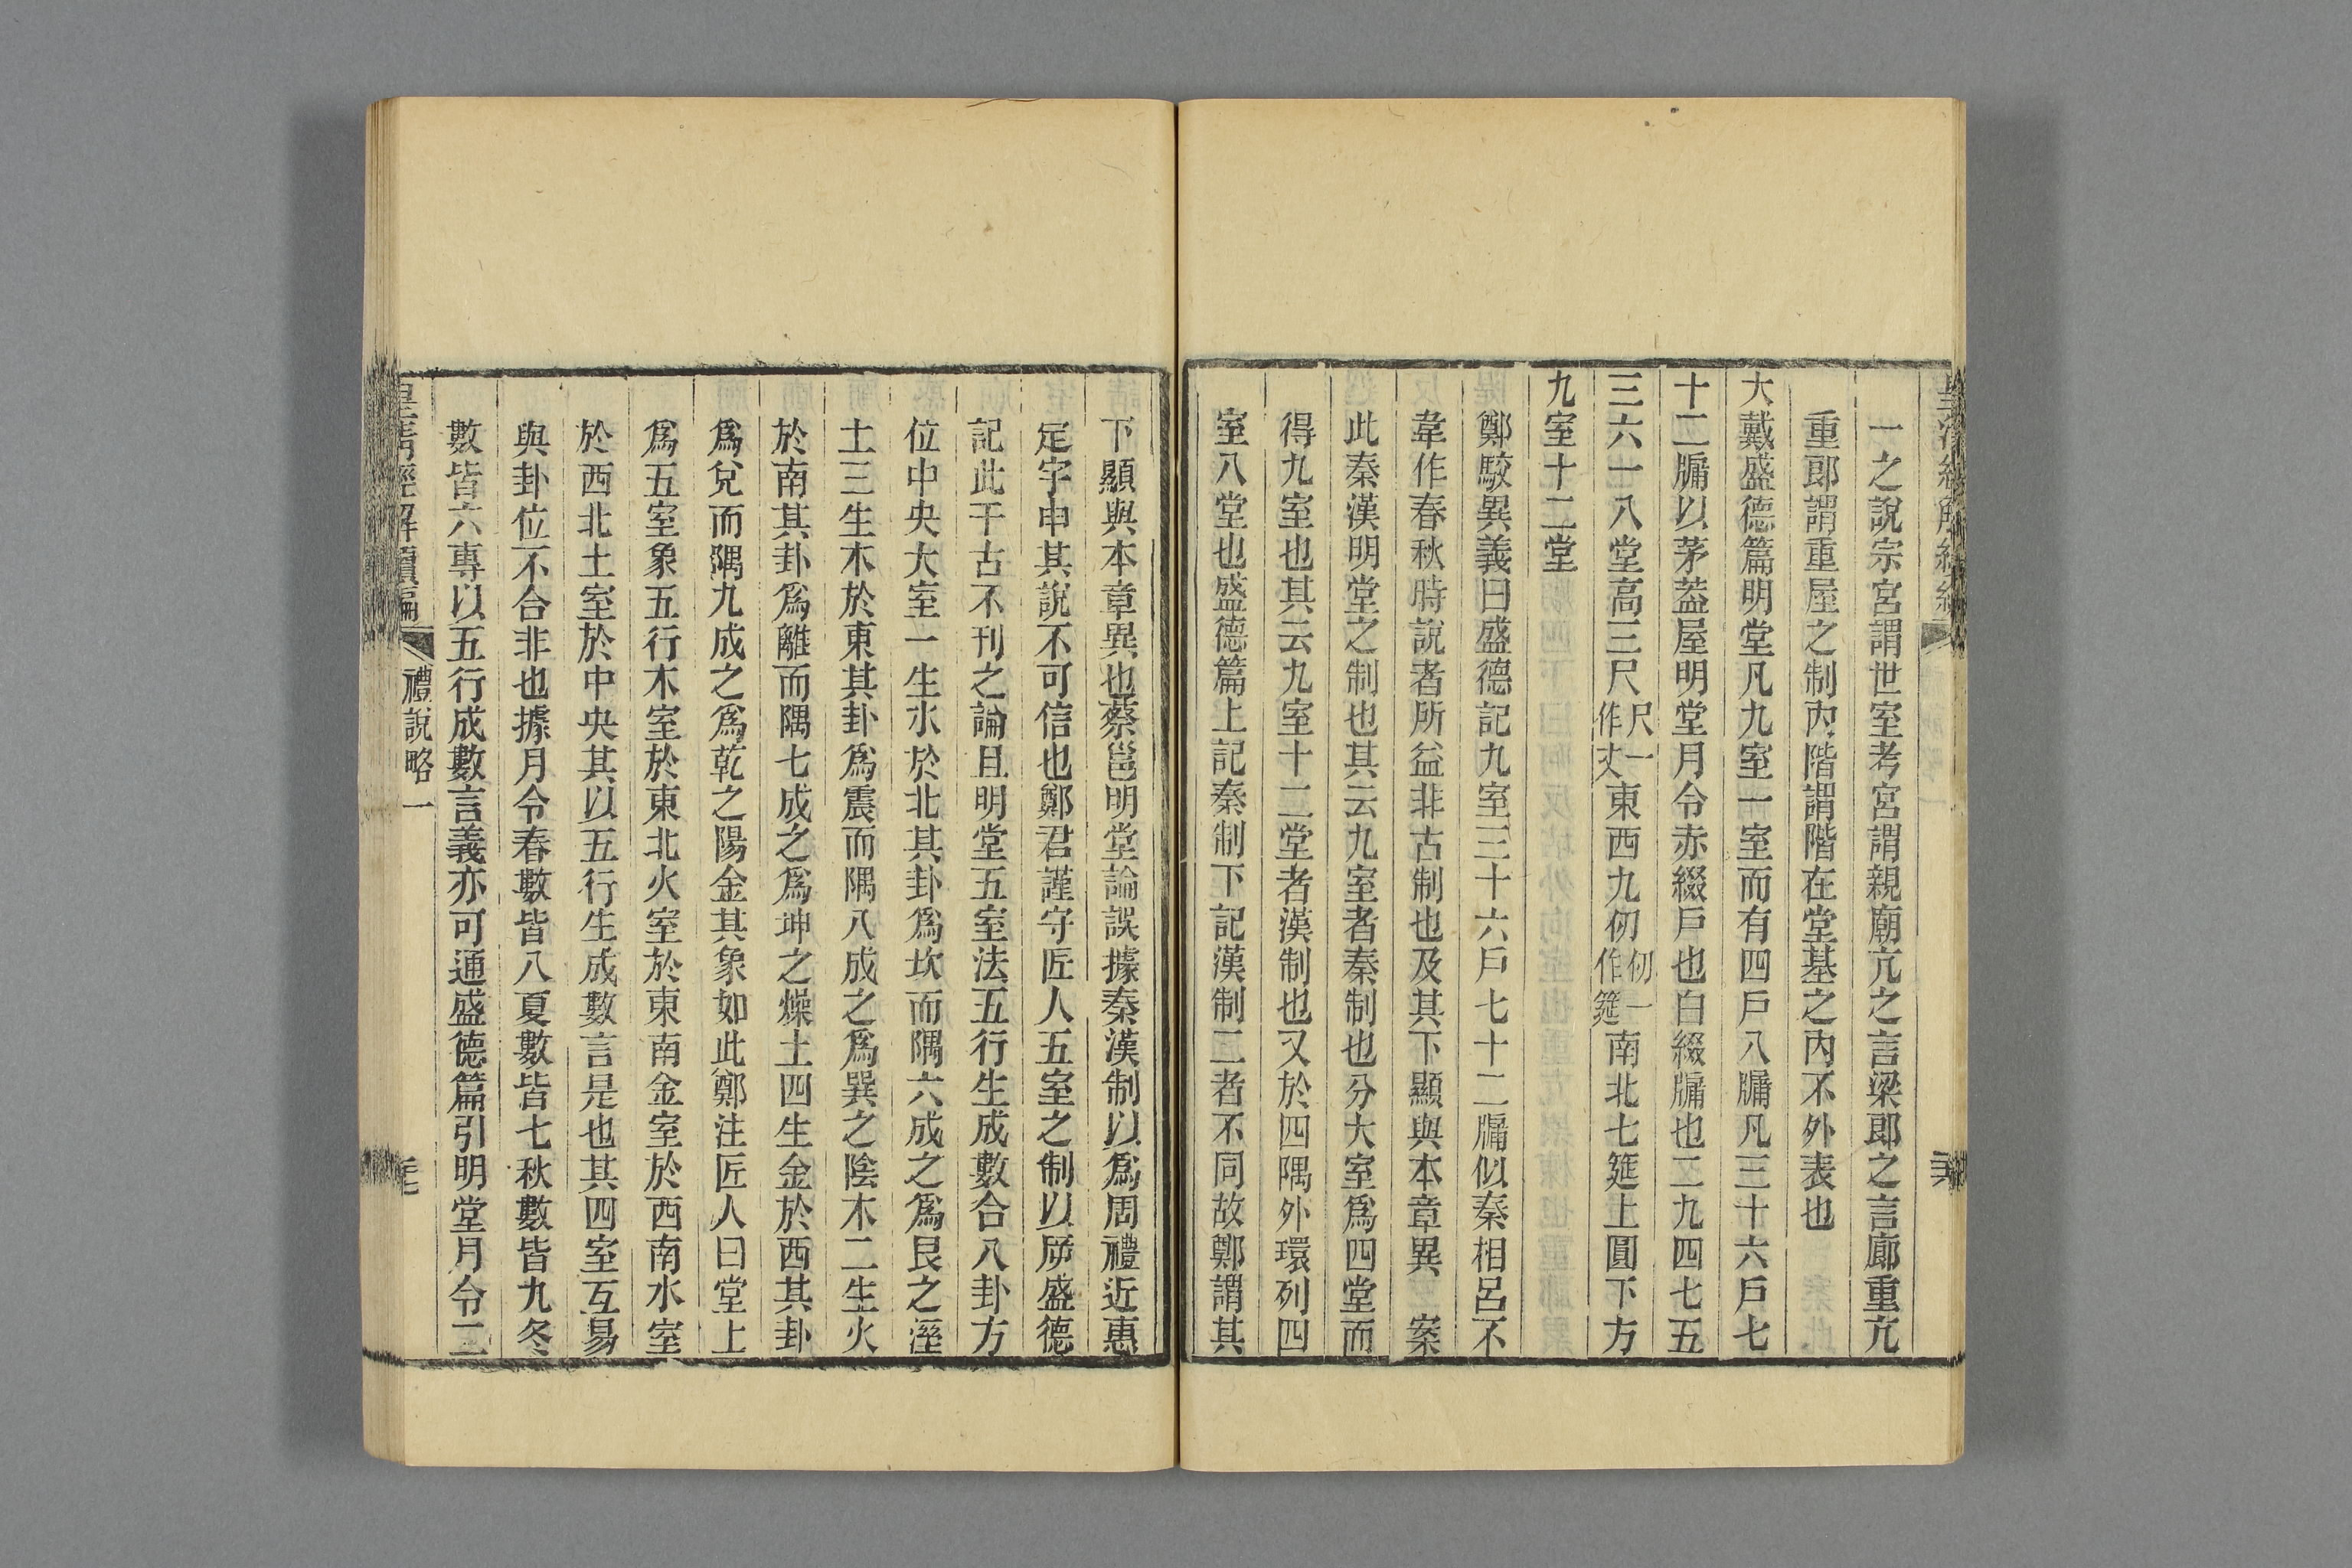 一之說宗宮謂世室考宮謂親廟亢之言梁郎之言廊重亢
重郎謂重屋之制內階謂階在堂基之內不外表也
大戴盛德篇明堂凡九室一室而有四戶八牖凡三十六戶七
十二牖以茅葢屋明堂月令赤綴戶也白綴牖也二九四七五
三六一八堂高三尺尺一作丈東西九仞仞一作筵南北七筵上圓下方
九室十二堂
鄭駮異義曰盛德記九室三十六戶七十二牖似秦相呂不
韋作春秋時說者所益非古制也及其下顯與本章異 案
此秦漢明堂之制也其云九室者秦制也分大室爲四堂而
得九室也其云九室十二堂者漢制也又於四隅外環列四
室八堂也盛德篇上記秦制下記漢制二者不同故鄭謂其
下顯與本章異也蔡邕明堂論誤據秦漢制以爲周禮近惠
定宇申其說不可信也鄭君謹守匠人五室之制以屏盛德
記此干古不刊之論且明堂五室法五行生成數合八卦方
位中央大室一生水於北其卦爲坎而隅六成之爲艮之溼
土三生木於東其卦爲震而隅八成之爲巽之陰木二生火
於南其卦爲離而隅七成之爲坤之燥土四生金於西其卦
爲兌而隅九成之爲乾之陽金其象如此鄭注匠人曰堂上
爲五室象五行木室於東北火室於東南金室於西南水室
於西北土室於中央其以五行生成數言是也其四室互易
與卦位不合非也據月令春數皆八夏數皆七秋數皆九冬
數皆六專以五行成數言義亦可通盛德篇引明堂月令二
皇淸經解續編 禮說略一